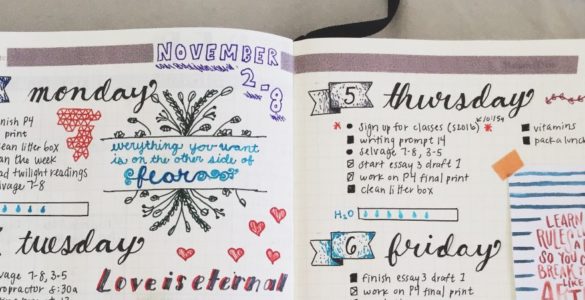 NOVEMBER
2-8
monday
nish P4
print
ean litter box
an the week
ad twilight readings
lvage 7-8
everything you want
is on the other side of
fear
tuesday
vage 7-8, 3-5
Love is eternal
5 thursday
sign up for classes (S2016)
writing prompt 14
selvage 7-8, 3-5
start essay 3 draft 1
work on P4 final print
clean litter box
vitamins
pack a lunch
H2O
6 friday
finish essay 3 draft 1
work on P4 final print
LEARN
RULES
SO YOU
BREAK
LIKE